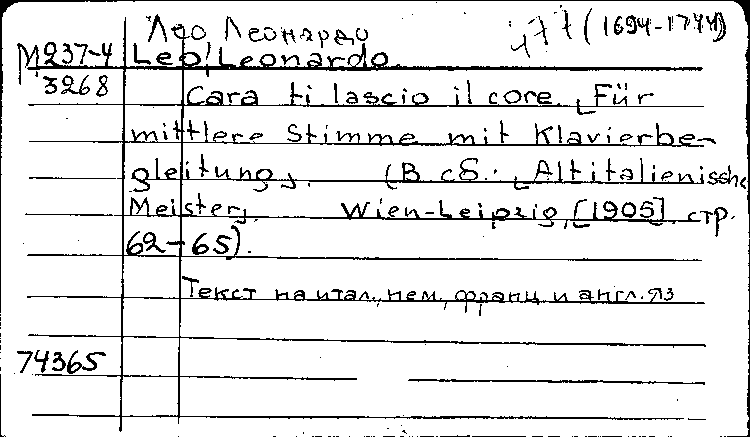 Лео Леонардо 477 (1694-1744)
М237-4 Leo, Leonardo.
3268
Cara ti lascio il core. [Für
mittlere Stimme mit Klavierbe-
gleitung]. (В сб.: [Altitalienische
Meister]. Wien-Leipzig, [1905]. стр.
62-65).
Текст на итал., нем., франц. и англ. яз
74365